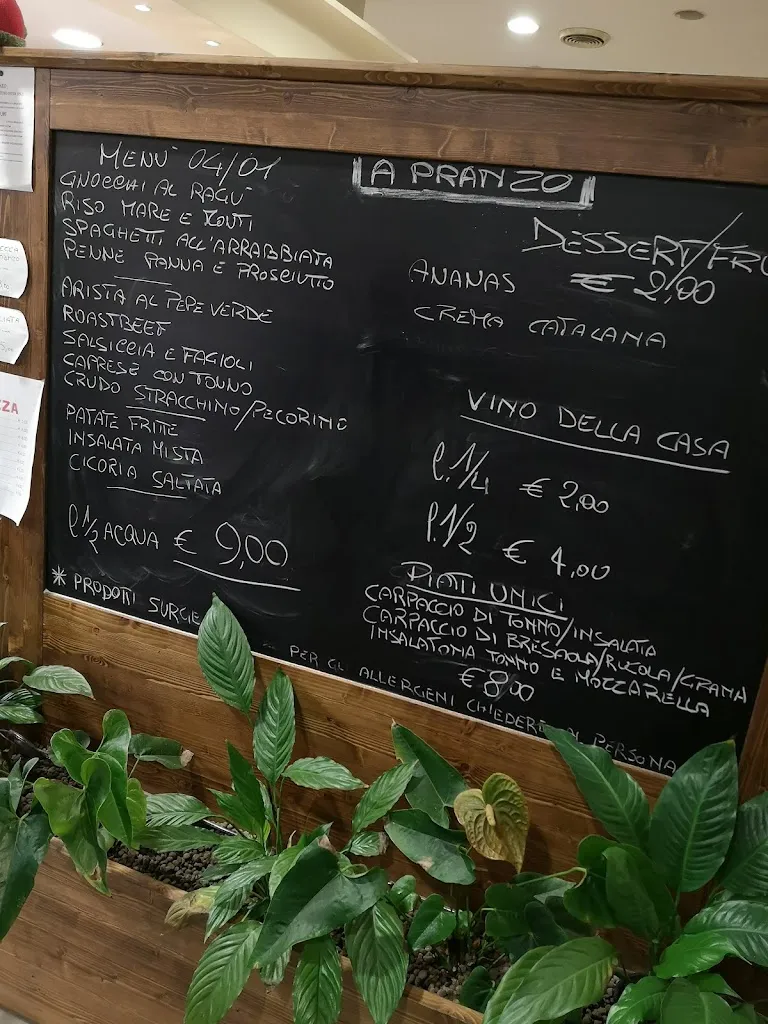 MENÙ 04/01
GNOCCHI AL RAGÙ
RISO MARE E MONTI
SPAGHETTI ALL'ARRABBIATA
PENNE PANNA E PROSCIUTTO
ARISTA AL PEPE VERDE
ROASTBEEF
SALSICCIA E FAGIOLI
CAPRESE CON TONNO
CRUDO STRACCHINO/PECORINO
PATATE FRITTE
INSALATA MISTA
CICORIA SALTATA
l 1/2 ACQUA € 9,00
* PRODOTTI SURGE
A PRANZO
DESSERT/FRU
€ 2,00
ANANAS
CREMA CATALANA
VINO DELLA CASA
l. 1/4 € 2,00
l. 1/2 € 4,00
PIATTI UNICI
CARPACCIO DI TONNO/INSALATA
CARPACCIO DI BRESAOLA/RUCOLA/GRANA
INSALATONA TONNO E MOZZARELLA
€ 8,00
PER GLI ALLERGENI CHIEDERE AL PERSONA
ZZA